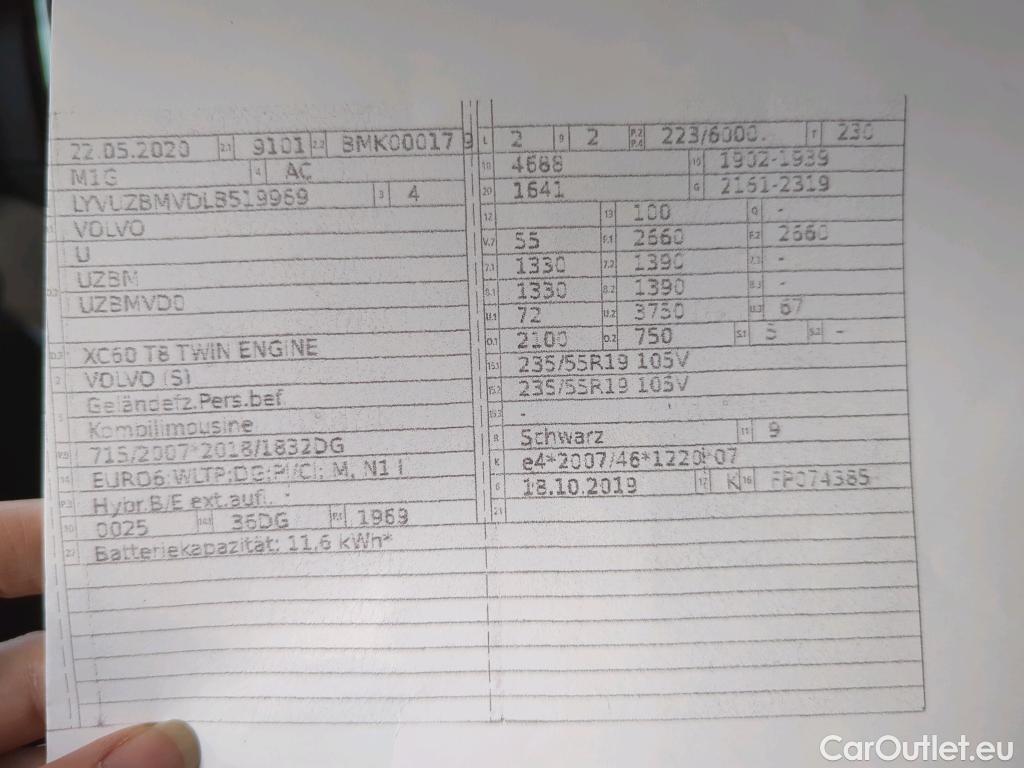 22.05.2020 2.1 9101 2.2 BMK00017 9 L 2 9 2 P.2 P.4 223/6000. T 230
M1G 4 AC 18 4688 19 1902-1939
LYVUZBMVDLB519969 3 4 20 1641 G 2161-2319
VOLVO 12 13 100 Q -
U V.7 55 F.1 2660 F.2 2660
UZBM 7.1 1330 7.2 1390 7.3 -
UZBMVD0 8.1 1330 8.2 1390 8.3 -
U.1 72 U.2 3750 U.3 67
D.3 XC60 T8 TWIN ENGINE O.1 2100 O.2 750 S.1 5 S.2 -
2 VOLVO (S) 15.1 235/55R19 105V
5 Geländefz.Pers.bef. 15.2 235/55R19 105V
Kombilimousine 15.3 -
V.9 715/2007*2018/1832DG R Schwarz 11 9
14 EURO6;WLTP;DG;PI/CI; M, N1 I K e4*2007/46*1220*07
P.3 Hybr.B/E ext.aufl. - 6 18.10.2019 17 K 16 FP074385
10 0025 14.1 36DG P.1 1969 21
22 Batteriekapazität: 11,6 kWh*
CarOutlet.eu